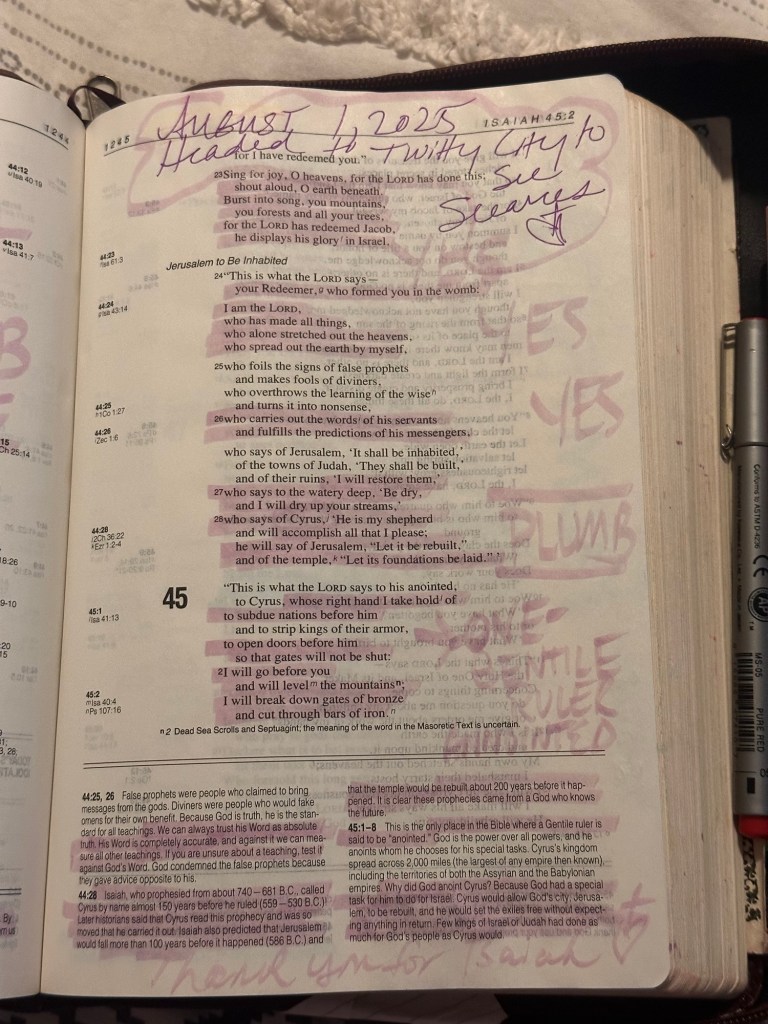 1245
ISAIAH 45:2
AUGUST 1, 2025
Headed to Twitty City to
See
for I have redeemed you."
23Sing for joy, O heavens, for the LORD has done this;
shout aloud, O earth beneath.
Burst into song, you mountains,
you forests and all your trees,
for the LORD has redeemed Jacob,
he displays his glory in Israel.
44:23
Isa 61:3
Jerusalem to Be Inhabited
24"This is what the LORD says—
your Redeemer,g who formed you in the womb:
44:24
gIsa 43:14
I am the LORD,
who has made all things,
who alone stretched out the heavens,
who spread out the earth by myself,
YES
25who foils the signs of false prophets
and makes fools of diviners,
who overthrows the learning of the wiseh
and turns it into nonsense,
44:25
h1Co 1:27
YES
26who carries out the words of his servants
and fulfills the predictions of his messengers,
44:26
iZec 1:6
who says of Jerusalem, 'It shall be inhabited,'
of the towns of Judah, 'They shall be built,'
and of their ruins, 'I will restore them,'
27who says to the watery deep, 'Be dry,
and I will dry up your streams,'
28who says of Cyrus,j 'He is my shepherd
and will accomplish all that I please;
he will say of Jerusalem, "Let it be rebuilt,"
and of the temple,k "Let its foundations be laid." '
44:28
j2Ch 36:22
kEzr 1:2-4
PLUMB
45 "This is what the LORD says to his anointed,
to Cyrus, whose right hand I take holdl of
to subdue nations before him
and to strip kings of their armor,
to open doors before him
so that gates will not be shut:
45:1
lIsa 41:13
2I will go before you
and will levelm the mountainsn;
I will break down gates of bronze
and cut through bars of iron.n
45:2
mIsa 40:4
nPs 107:16
GENTILE
RULER
ANOINTED
n 2 Dead Sea Scrolls and Septuagint; the meaning of the word in the Masoretic Text is uncertain.
44:25, 26 False prophets were people who claimed to bring
messages from the gods. Diviners were people who would fake
omens for their own benefit. Because God is truth, he is the stan-
dard for all teachings. We can always trust his Word as absolute
truth. His Word is completely accurate, and against it we can mea-
sure all other teachings. If you are unsure about a teaching, test it
against God's Word. God condemned the false prophets because
they gave advice opposite to his.
44:28 Isaiah, who prophesied from about 740–681 B.C., called
Cyrus by name almost 150 years before he ruled (559–530 B.C.)!
Later historians said that Cyrus read this prophecy and was so
moved that he carried it out. Isaiah also predicted that Jerusalem
would fall more than 100 years before it happened (586 B.C.) and
that the temple would be rebuilt about 200 years before it hap-
pened. It is clear these prophecies came from a God who knows
the future.
45:1–8 This is the only place in the Bible where a Gentile ruler is
said to be "anointed." God is the power over all powers, and he
anoints whom he chooses for his special tasks. Cyrus's kingdom
spread across 2,000 miles (the largest of any empire then known),
including the territories of both the Assyrian and the Babylonian
empires. Why did God anoint Cyrus? Because God had a special
task for him to do for Israel. Cyrus would allow God's city, Jerusa-
lem, to be rebuilt, and he would set the exiles free without expect-
ing anything in return. Few kings of Israel or Judah had done as
much for God's people as Cyrus would.
Thank you for Isaiah
1244
44:12
Isa 40:19
44:13
Isa 41:7
Conforms to ASTM D-4236
MS-05
PURE RED